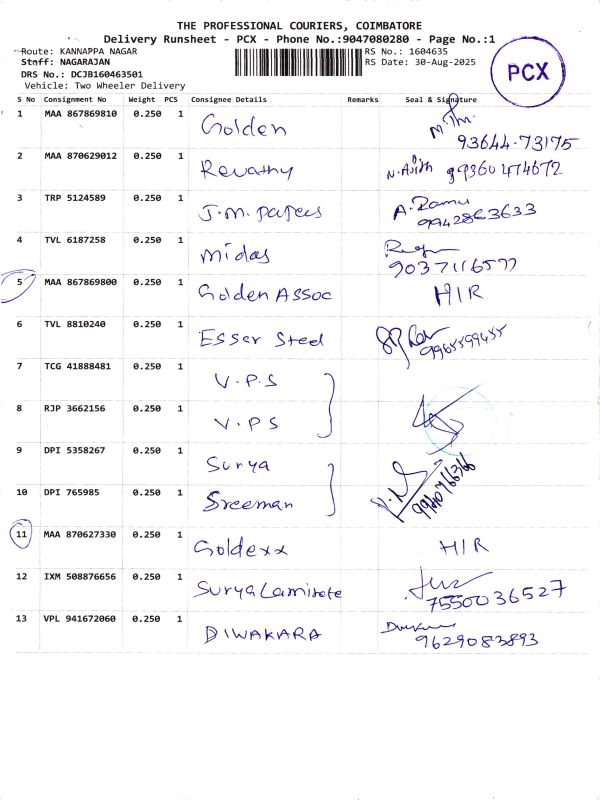 THE PROFESSIONAL COURIERS, COIMBATORE
Delivery Runsheet - PCX - Phone No.:9047080280 - Page No.:1
Route: KANNAPPA NAGAR RS No.: 1604635
Staff: NAGARAJAN RS Date: 30-Aug-2025
DRS No.: DCJB160463501
Vehicle: Two Wheeler Delivery
PCX
S No Consignment No Weight PCS Consignee Details Remarks Seal & Signature
1 MAA 867869810 0.250 1 Golden
93644-73175
2 MAA 870629012 0.250 1 Revathy N.Ajith 9360474672
3 TRP 5124589 0.250 1 J.M. papers A.Ramu
9942863633
4 TVL 6187258 0.250 1 Midas
9037116577
5 MAA 867869800 0.250 1 Golden Assoc H/R
6 TVL 8810240 0.250 1 Essar Steel 9965599455
7 TCG 41888481 0.250 1 V.P.S
8 RJP 3662156 0.250 1 V.P.S
9 DPI 5358267 0.250 1 Surya
10 DPI 765985 0.250 1 Sreeman 9940766366
11 MAA 870627330 0.250 1 Goldexx H/R
12 IXM 508876656 0.250 1 Surya Laminete
7550036527
13 VPL 941672060 0.250 1 DIWAKARA
9629083893